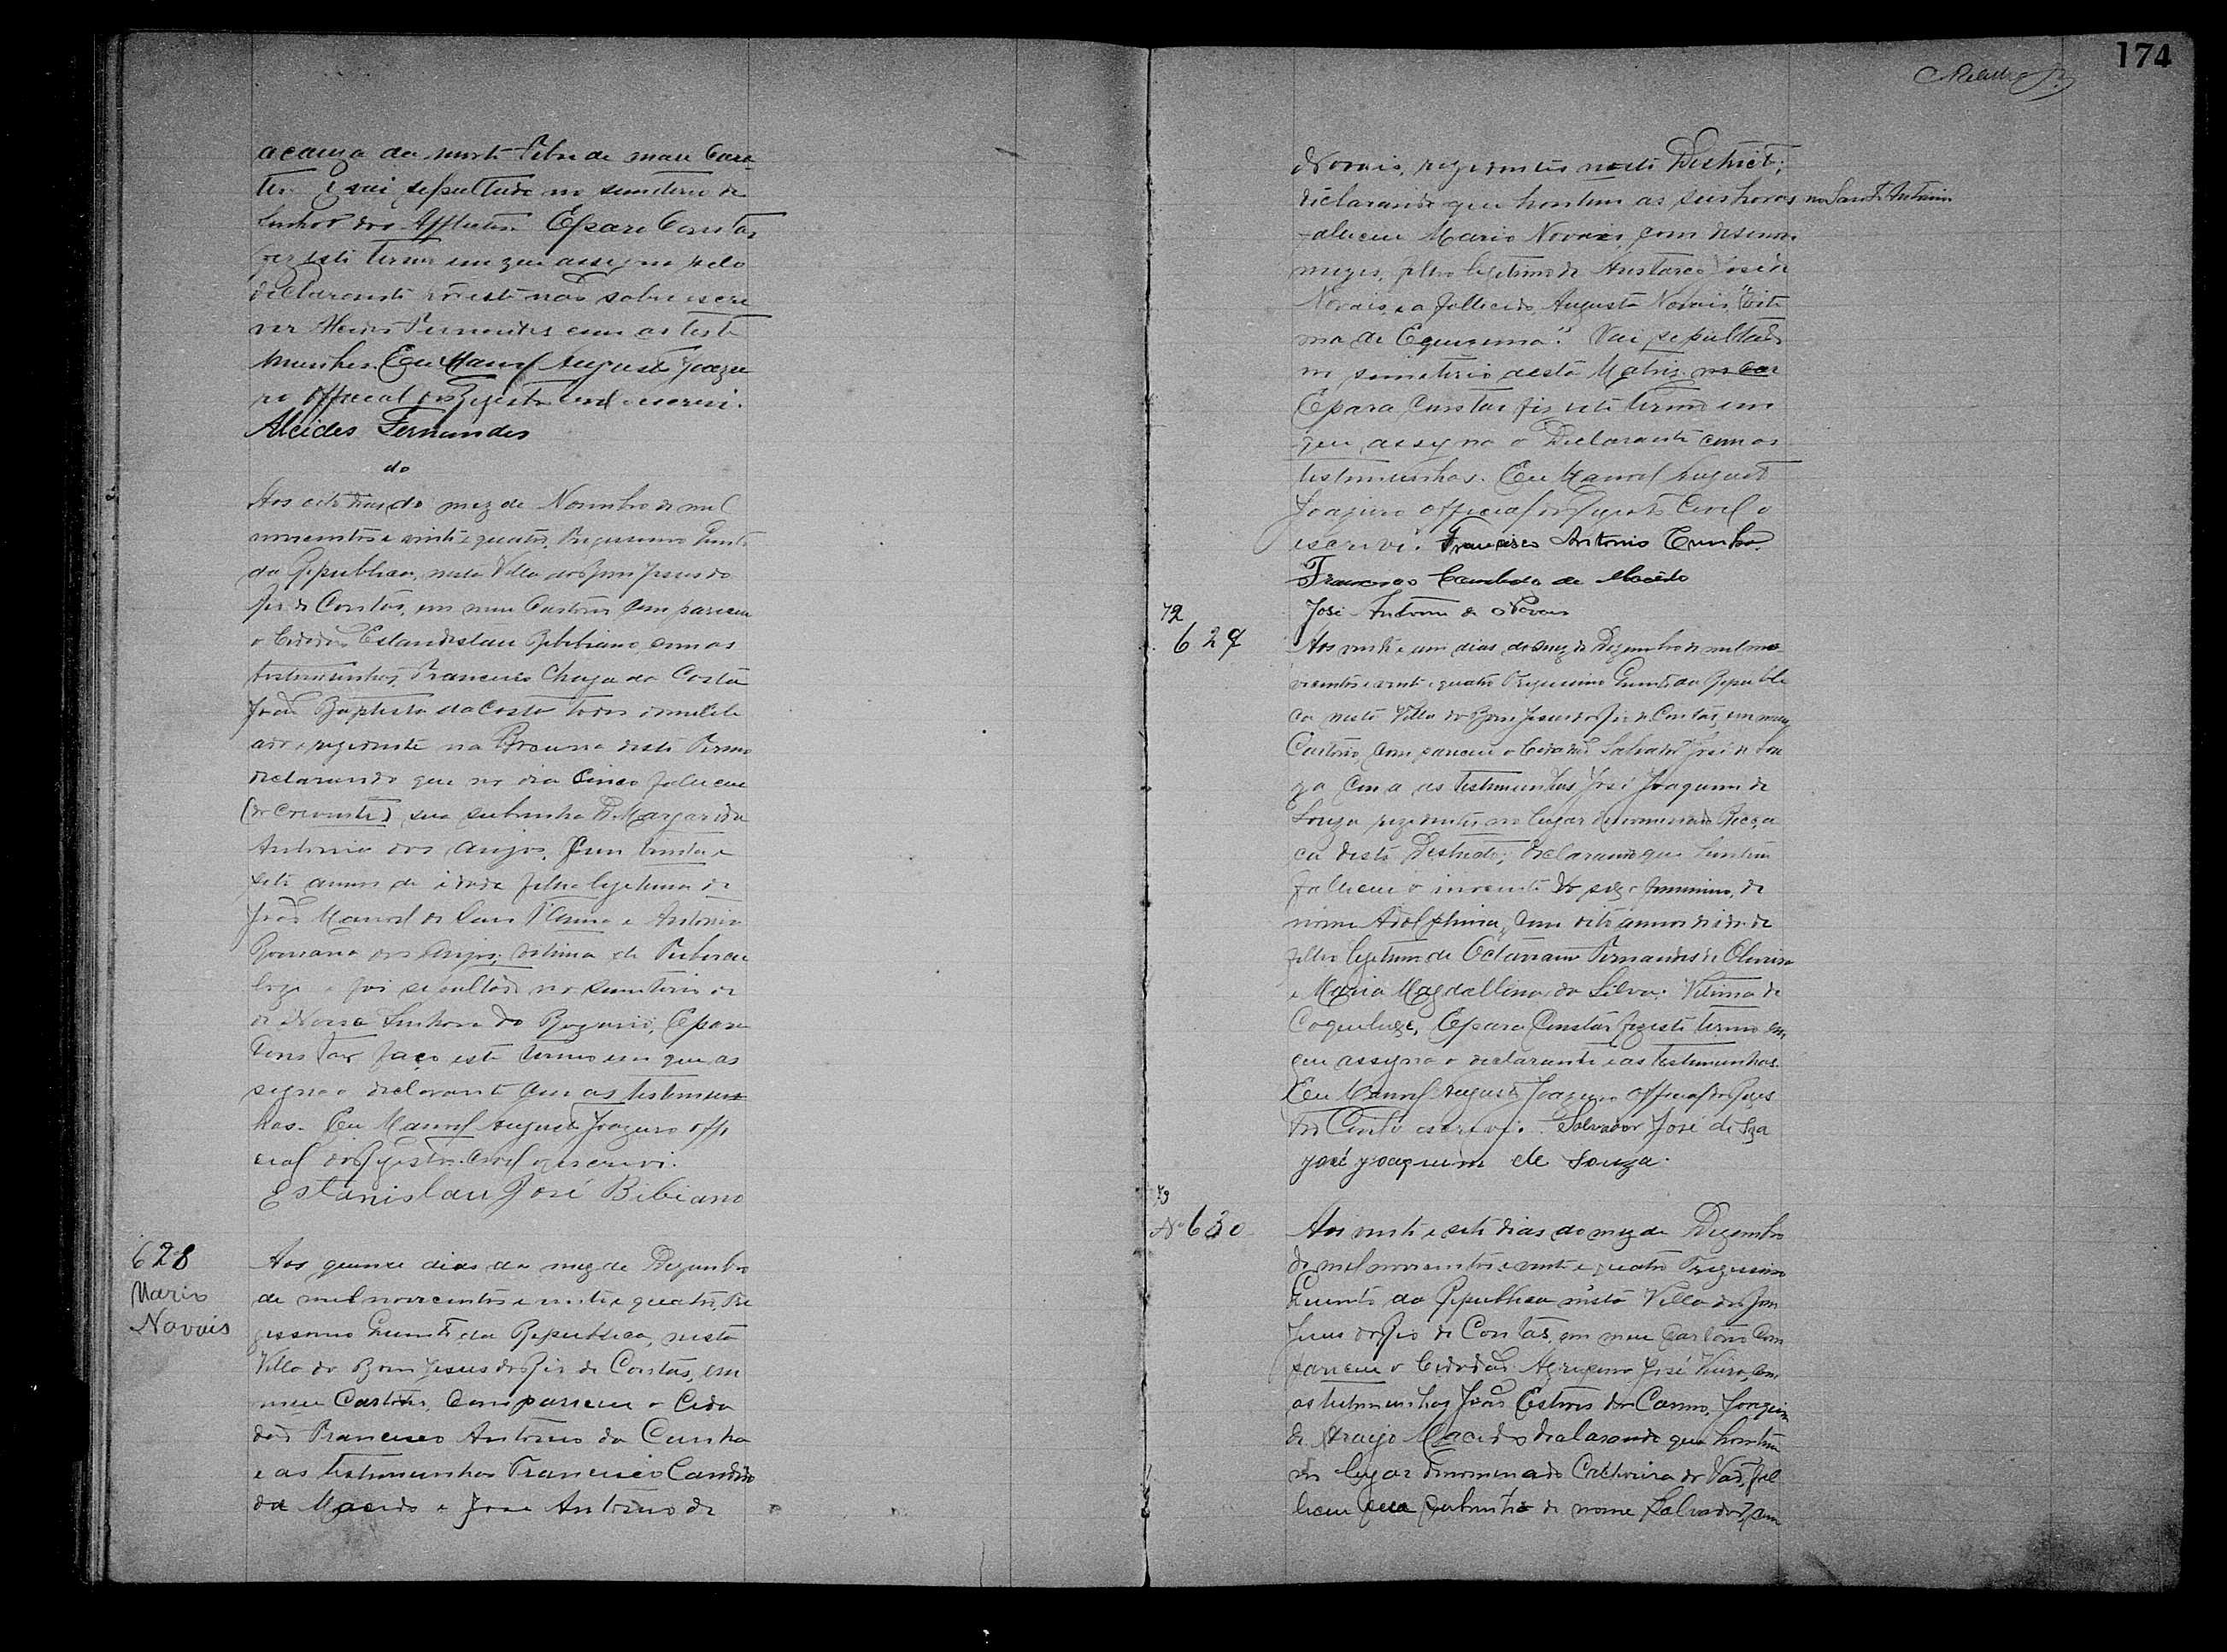 acauza da morte Febre de mau Cara
ter. E vai sepultado no semiterio do
Senhor dos Afflictos. E para Constar
fez este termo em que assigna pelo
declarante por este não saber escre
ver Alcides Fernandes com as teste
munhas. Eu Manoel Augusto Joazei
ro official do Registro Civil o escrevi.
Alcides Fernandes
do
Aos oito dias do mez de Novembro de mil
novecentos e vinte e quatro, Trigesimo Quinto
da Republica, nesta Villa do Bom Jesus do
Rio de Contas, em meu Cartorio Compareceu
o Cidadão Estandeslau Bibiano, com as
testemunhas, Francisco Chaga da Costa
João Baptista da Costa todos domicili
ado e rezidente na Brauna deste Termo
declarando que no dia Cinco faleceu
(do Corrente) sua subrinha D. Margarida
Antonia dos Anjos, Com trinta e
sete annos de idade filha legitima de
João Manoel de Sant'Anna e Antonia
Romana dos Anjos, vitima de Tubercu
loze e foi sepultada no Semiterio de
de Nossa Senhora do Rozario, E para
Cons tar faço este termo em que as
signa o declarante com as testemun
has. Eu Manoel Augusto Joazeiro offi
cial do Registro Civil o escrevi.
Estanislau José Bibiano
628
Mario
Novais
Aos quinze dias do mez de Dezembro
de mil novecentos e vinte e quatro, Tri
gessimo Quinto da Republica, nesta
Villa do Bom Jesus do Rio de Contas, em
meu Cartorio, Compareceu o Cida
dão Francisco Antonio da Cunha
e as testemunhas Francisco Candido
de Macedo e Jose Antonio de
174
Novais, rezidentes neste Districto;
declarando que hontem as seis horas no Santo Antonio
faleceu Mario Novais, com desenove
mezes, filho legitimo de Aristarco José de
Novais, e a fallecida Augusta Novais, "Viti
ma de Equizema". Vai sepultado
no semiterio desta Matriz. no Car
E para Constar fiz este termo em
que assigna o Declarante com as
testemunhas. Eu Manoel Augusto
Joazeiro official do Registo Civil o
escrevi. Francisco Antonio Cunha.
Francisco Candido de Macêdo
José Antonio de Novais
72
629
Aos vinte e um dias do mez de Dezembro de mil nove
centos e vinte e quatro Trigesimo Quinto da Republi
ca nesta Villa do Bom Jesus do Rio de Contas, em meu
Cartorio, Compareceu o Cidadão Salvador José de Sou
za Com a as testemunhas José Joaquim de
Souza rezidentes no lugar denominado
deste Destrito; declarando que hontem
falleceu o inocente do sexo feminino, de
nome Adolphina, Com oito annos de idade
filha legitima de Octaviano Fernandes de Oliveira
e Maria Magdallena da Silva. Vitima de
Coqueluxe, E para Constar fiz este termo em
que assigna o declarante e as testemunhas.
Eu Manoel Augusto Joazeiro official do Regis
tro Civil o escrevi. Salvador José de Sza
José Joaquim de Souza.
73
No 630
Aos vinte e sete dias do mez de Dezembro
de mil novecentos e vinte e quatro Trigesimo
Quinto da Republica nesta Villa do Bom
Jesus do Rio de Contas, em meu Cartorio Com
pareceu o Cidadão José Vieira, Com
as testemunhas João Esteves do Carmo, Joaquim
de Araujo Macedo declarando que hontem
no lugar denominado Cachoeira do Vao, fal
leceu seu subrinho de nome Salvador, com